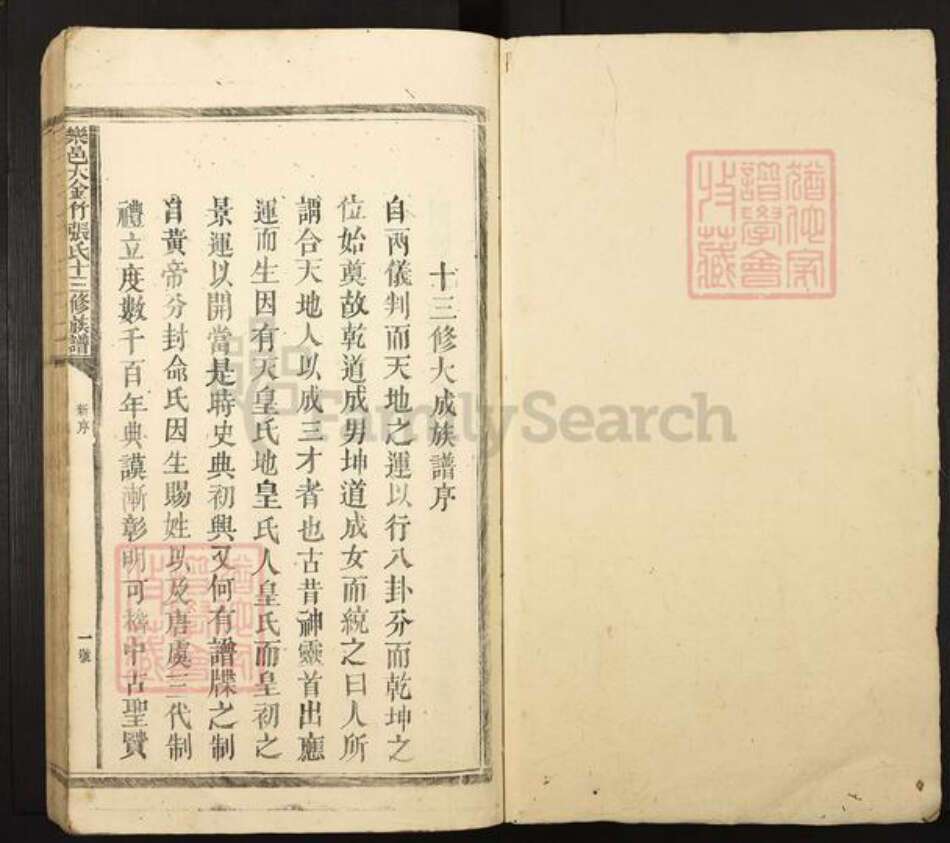 十三修大成族譜序
自两儀判而天地之運以行八卦分而乾坤之
位始奠故乾道成男坤道成女而統之曰人所
謂合天地人以成三才者也古昔神靈首出應
運而生因有天皇氏地皇氏人皇氏而皇初之
景運以開當是時史典初興又何有譜牒之制
自黃帝分封命氏因生賜姓以及唐虞三代制
禮立度數千百年典謨漸彰明可稽中古聖賢
樂邑大金竹張氏十三修族譜
新序
一號
猶他家
譜學會
收藏
猶他家
譜學會
收藏
FamilySearch